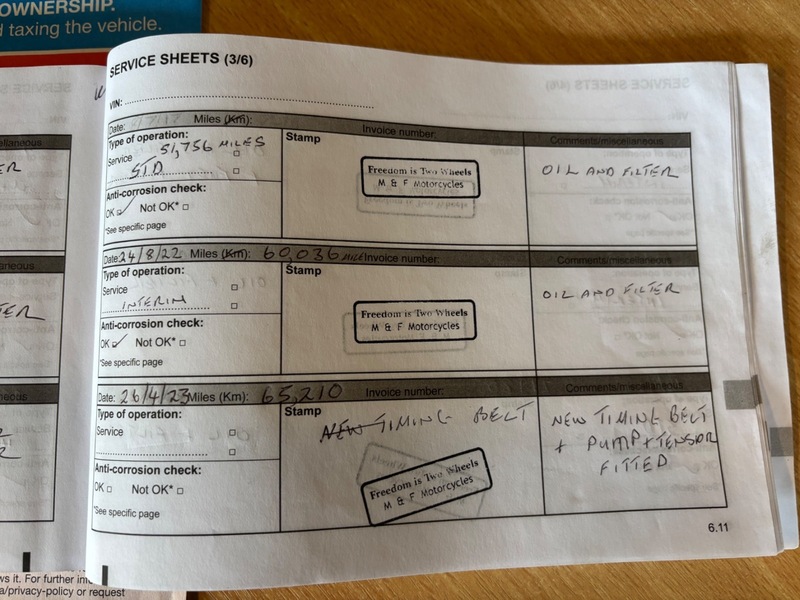 OWNERSHIP.
d taxing the vehicle.
SERVICE SHEETS (3/6)
VIN:
Date: Miles (Km): Invoice number: Comments/miscellaneous
Type of operation:
Service 51,756 MILES
STD
Anti-corrosion check:
OK Not OK*
*See specific page
Stamp
Freedom is Two Wheels
M & F Motorcycles
OIL AND FILTER
Date: 24/8/22 Miles (Km): 60,036 MILE Invoice number: Comments/miscellaneous
Type of operation:
Service
INTERIM
Anti-corrosion check:
OK Not OK*
*See specific page
Stamp
Freedom is Two Wheels
M & F Motorcycles
OIL AND FILTER
Date: 26/4/23 Miles (Km): 65,210 Invoice number: Comments/miscellaneous
Type of operation:
Service
Anti-corrosion check:
OK Not OK*
*See specific page
Stamp
NEW TIMING BELT
Freedom is Two Wheels
M & F Motorcycles
NEW TIMING BELT
+ PUMP + TENSOR
FITTED
6.11
ws it. For further
a/privacy-policy or request